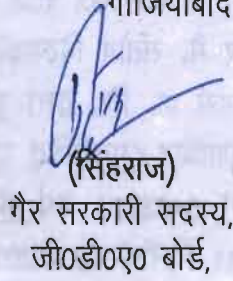 गाजियाबाद
(सिंहराज)
गैर सरकारी सदस्य,
जी0डी0ए0 बोर्ड,